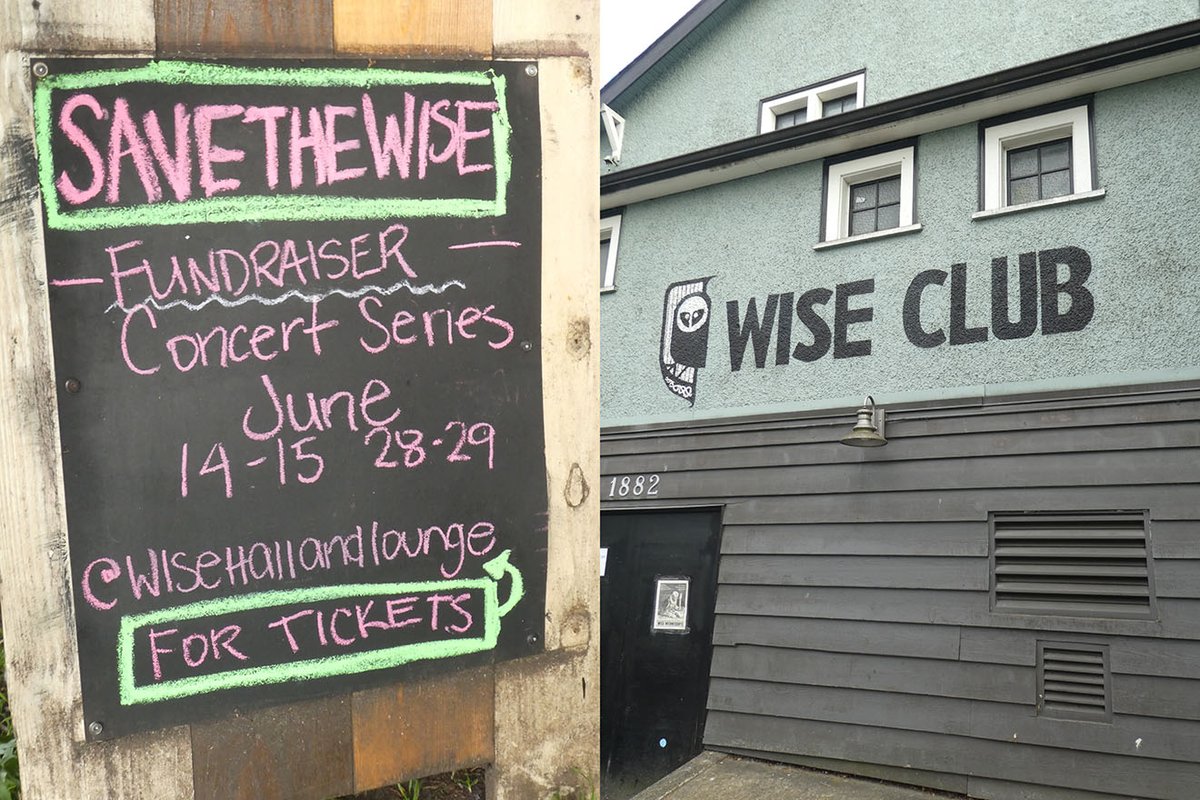 SAVE THE WISE
FUNDRAISER
Concert Series
June
14-15 28-29
@WISEHallandlounge
FOR TICKETS
WISE CLUB
1882